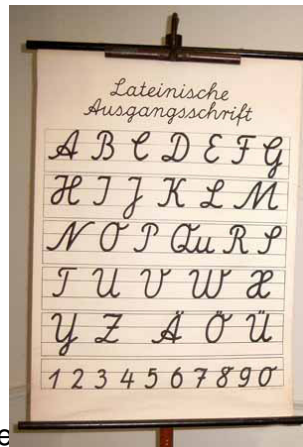 Lateinische
Ausgangsschrift
A B C D E F G
H I J K L M
N O P Qu R S
T U V W X
Y Z Ä Ö Ü
1 2 3 4 5 6 7 8 9 0
e